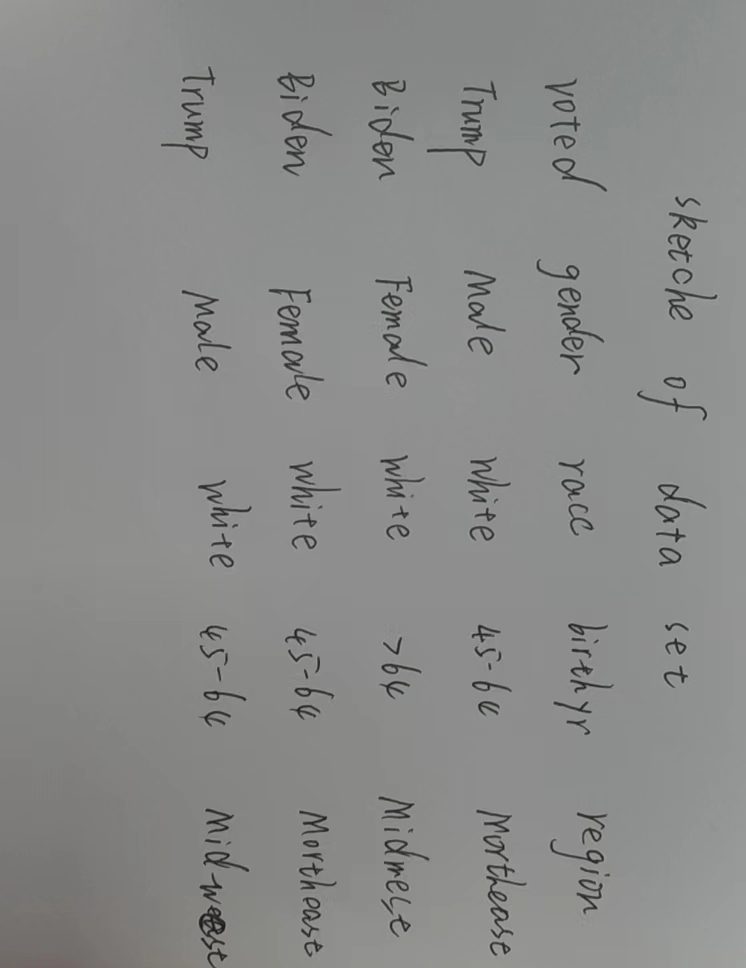 sketche of data set
voted gender race birthyr region
Trump Male white 45-64 Northeast
Biden Female white >64 Midwest
Biden Female white 45-64 Northeast
Trump Male white 45-64 Midwest